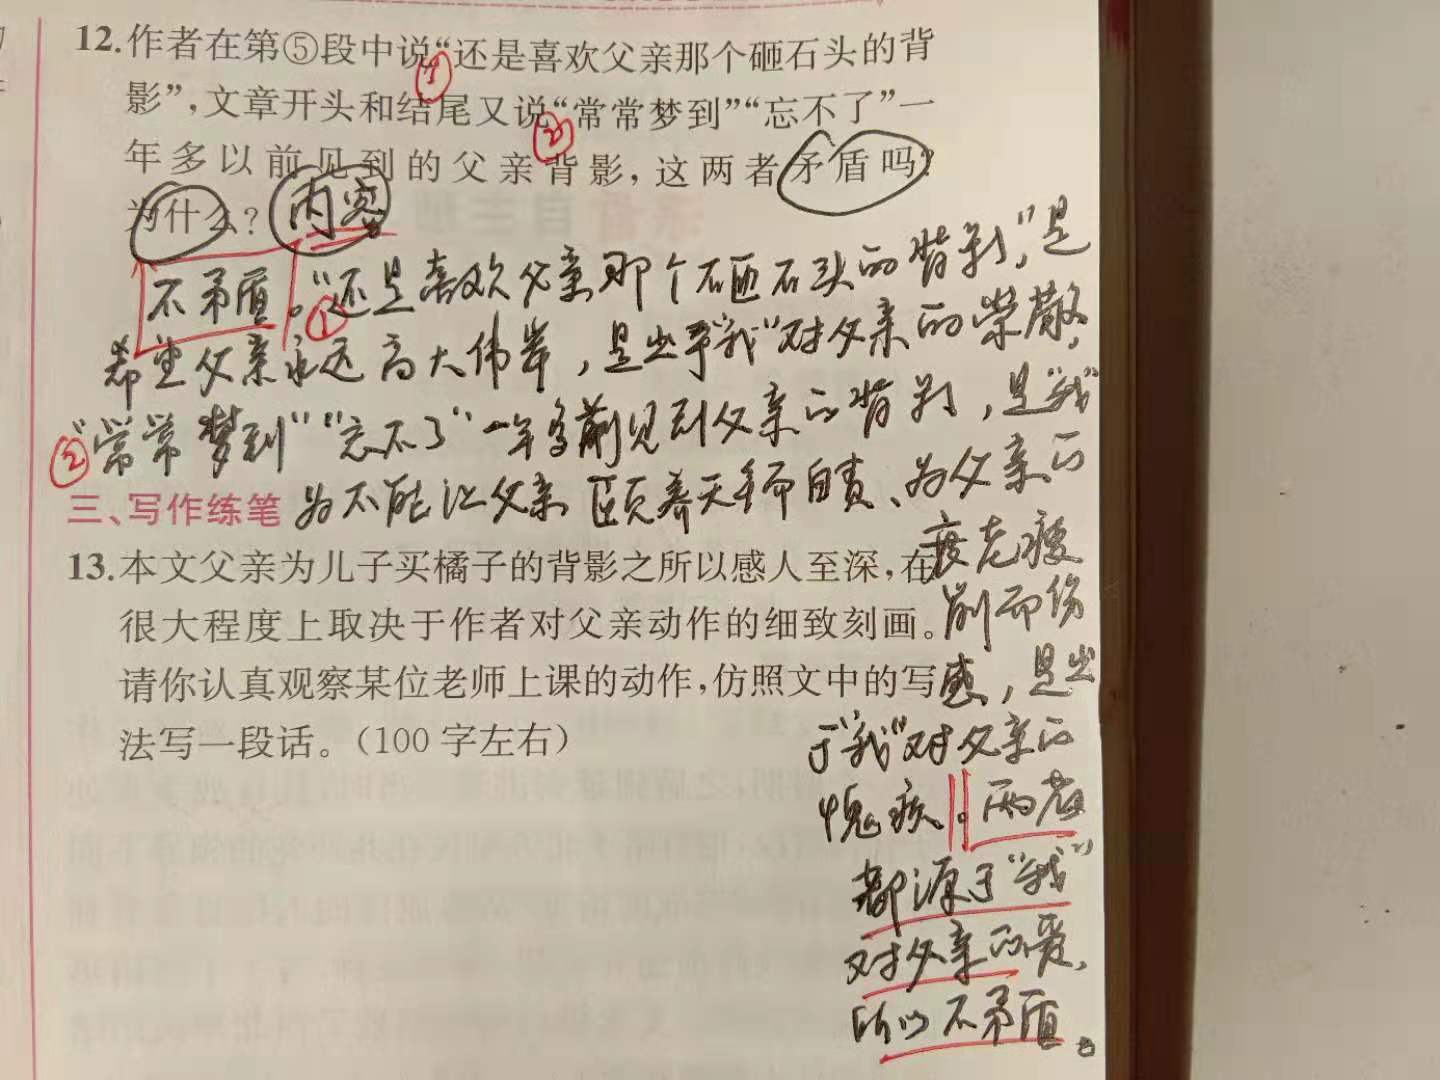 12.作者在第⑤段中说“还是喜欢父亲那个砸石头的背
①
影”,文章开头和结尾又说“常常梦到”“忘不了”一
②
年多以前见到的父亲背影,这两者矛盾吗?
为什么? 内容
不矛盾。“还是喜欢父亲那个砸石头的背影”,是
①
希望父亲永远高大伟岸,是出乎“我”对父亲的荣
②“常常梦到”“忘不了”一年多前见到父亲的背影,是“我”
三、写作练笔 为不能让父亲颐养天年而自责、为父亲的
衰老瘦
13.本文父亲为儿子买橘子的背影之所以感人至深,在
削而伤
很大程度上取决于作者对父亲动作的细致刻画。
感,是出
请你认真观察某位老师上课的动作,仿照文中的写
于“我”对父亲的
法写一段话。(100字左右)
愧疚。两者
都源于“我”
对父亲的爱,
所以不矛盾。